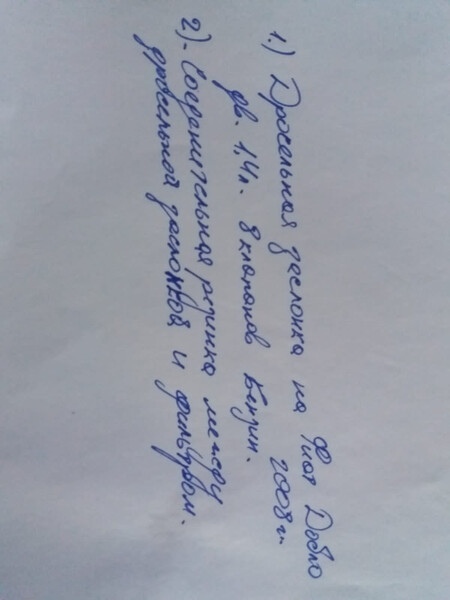 1.) Дросельная заслонка на Фиат Добло
дв. 1,4л. 8 клапанов Бензин. 2008г.
2).- Соединительная резинка между
дросельной заслонкой и фильтром.